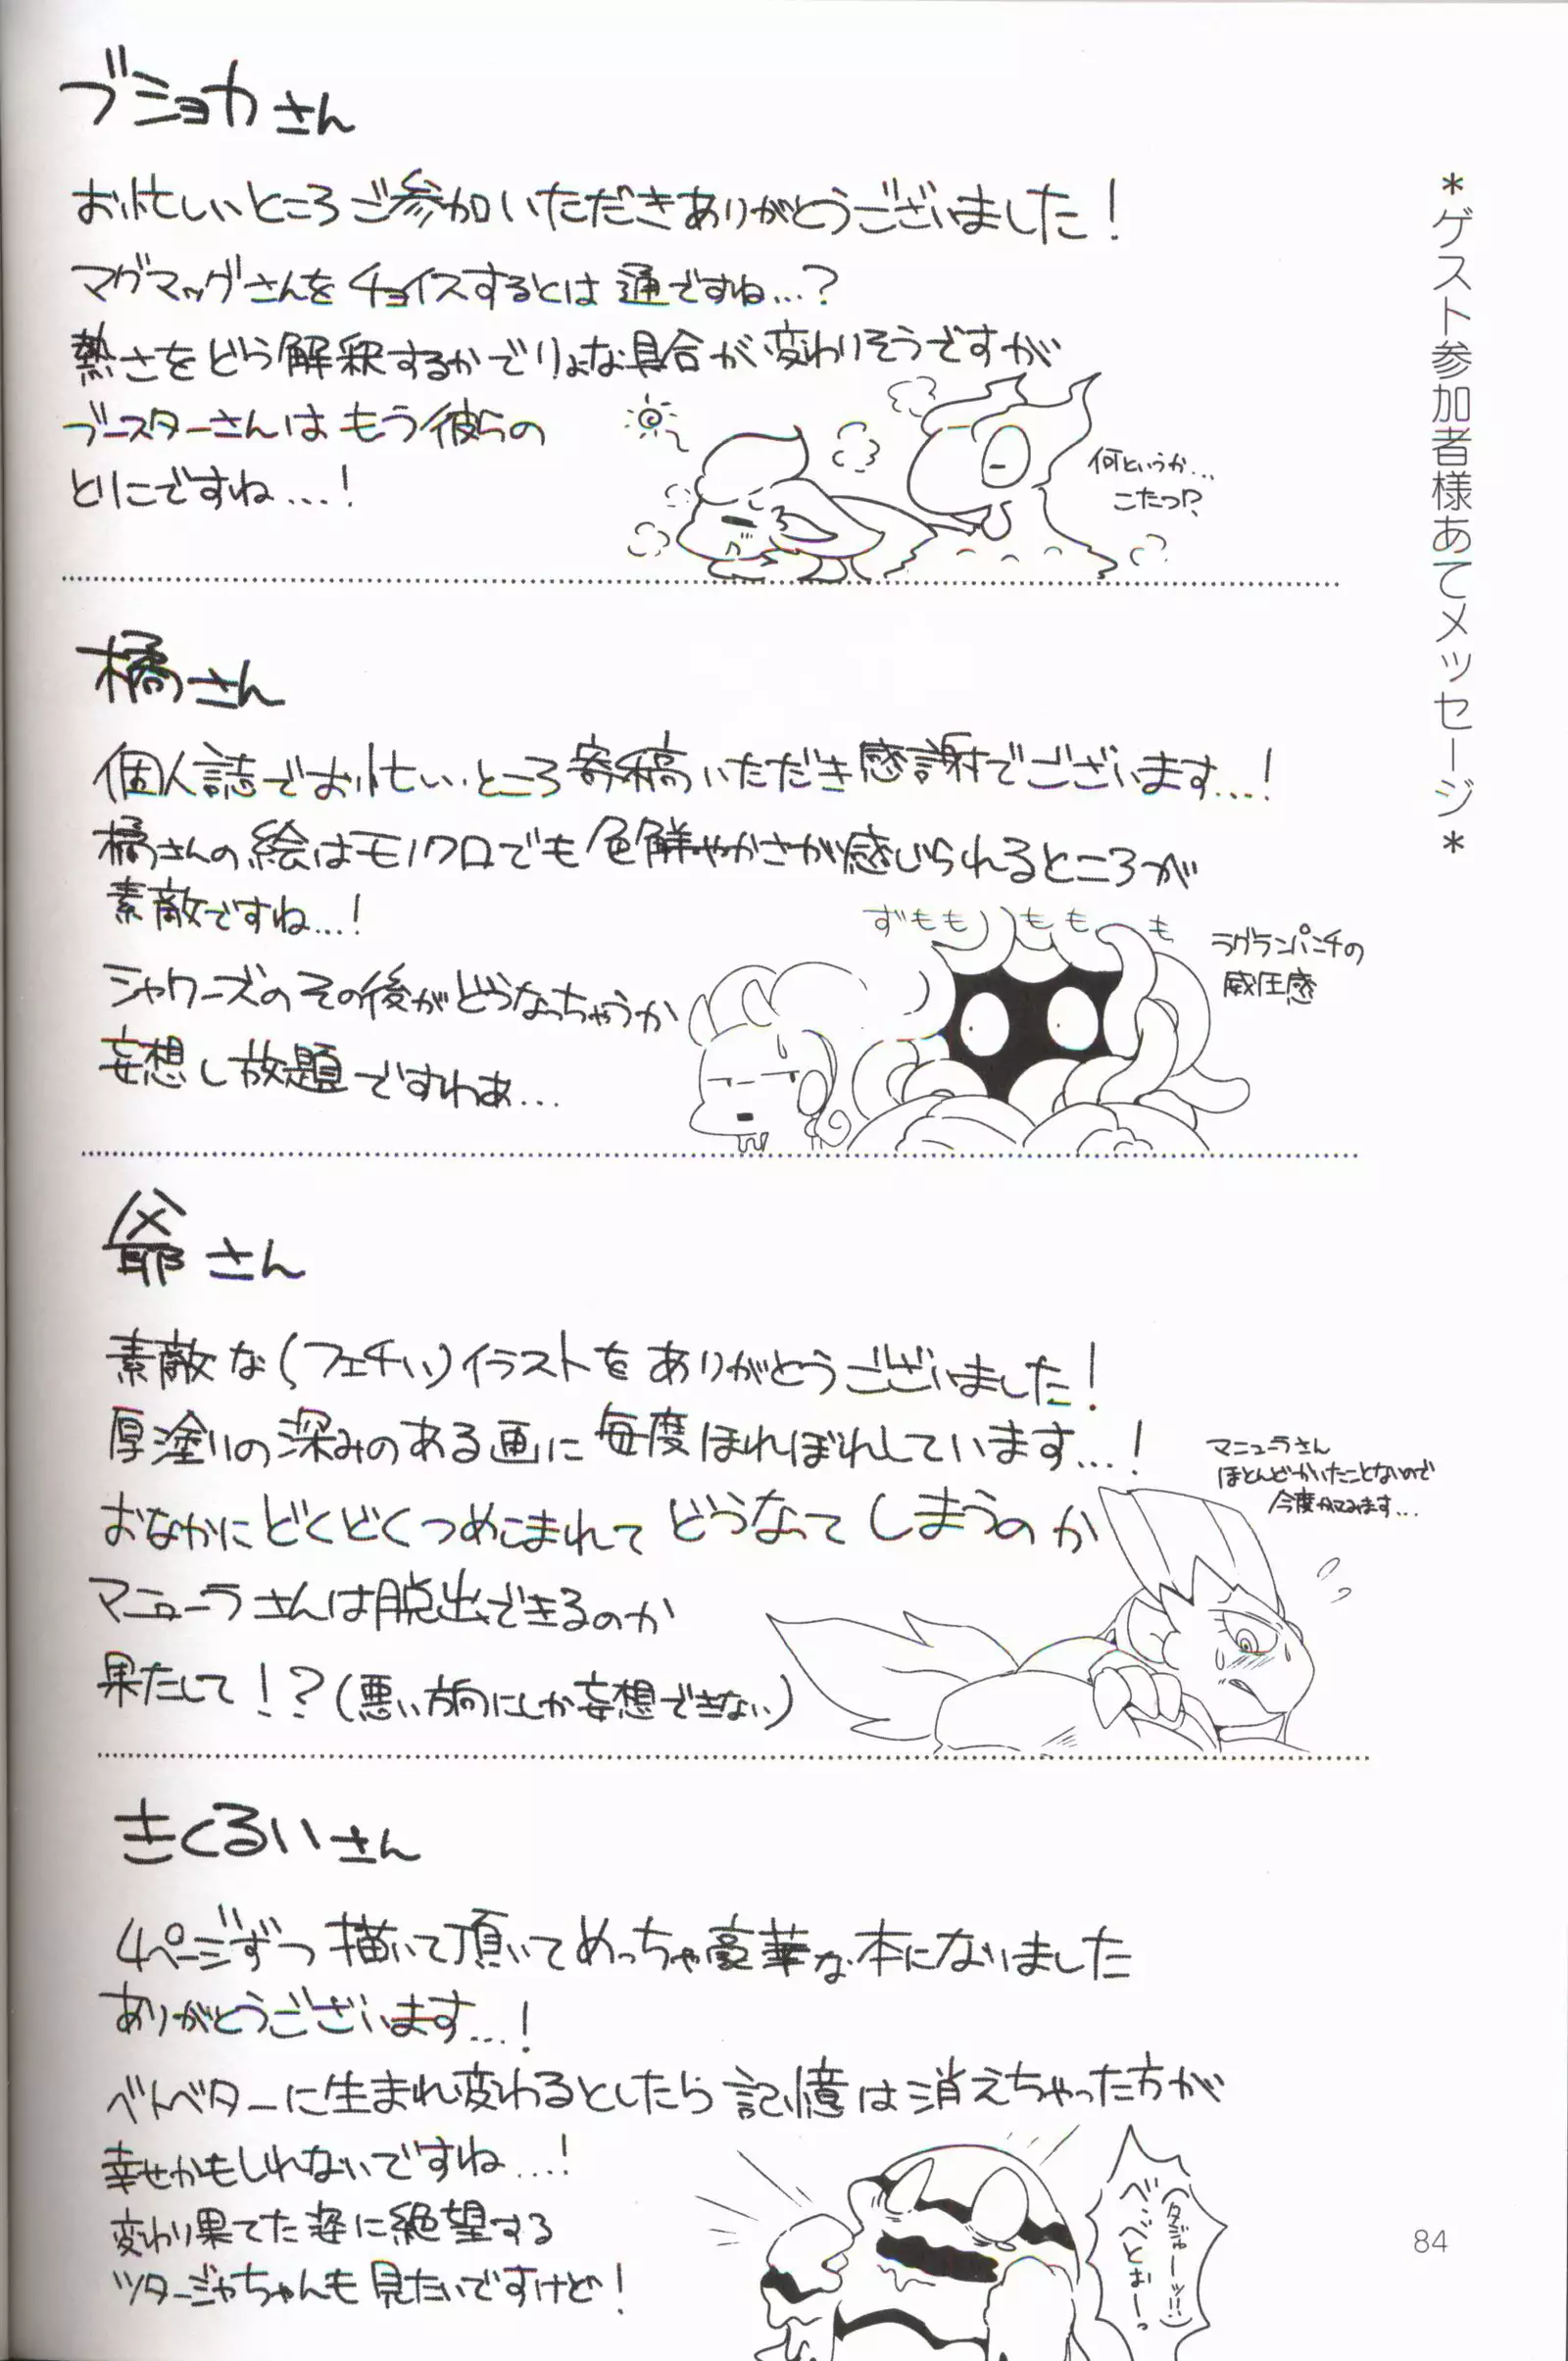 ＊ゲスト参加者様あてメッセージ＊
ブショカさん
お忙しいところご参加いただきありがとうございました！
マグマッグさんをチョイスするとは通ですね…？
熱さをどう解釈するかでりょな具合が変わりそうですが
ブースターさんはもう彼らの
とりこですね…！
何というか…
こたつ!?
橘さん
個人誌でお忙しいところ寄稿いただき感謝でございます…！
橘さんの絵はモノクロでも色鮮やかさが感じられるところが
素敵ですね…！
シャワーズのその後がどうなっちゃうか
妄想し放題ですわぁ…
ずももももも
ラグランパンチの
威圧感
爺さん
素敵な(フェチい)イラストをありがとうございました！
厚塗りの深みのある画に毎度ほれぼれしています…！
おなかにどくどくつめこまれてどうなってしまうのか
マニューラさんは脱出できるのか
果たして！？(悪い方向にしか妄想できない)
マニューラさん
ほとんどかいたことないので
今度かいてみます…
きくるいさん
4ページずつ描いて頂いてめっちゃ豪華な本になりました
ありがとうございます…！
ベトベターに生まれ変わるとしたら記憶は消えちゃった方が
幸せかもしれないですね…！
変わり果てた姿に絶望する
ツタージャちゃんも見たいですけど！
(タジャーッ!!)
べべとぉーっ
84